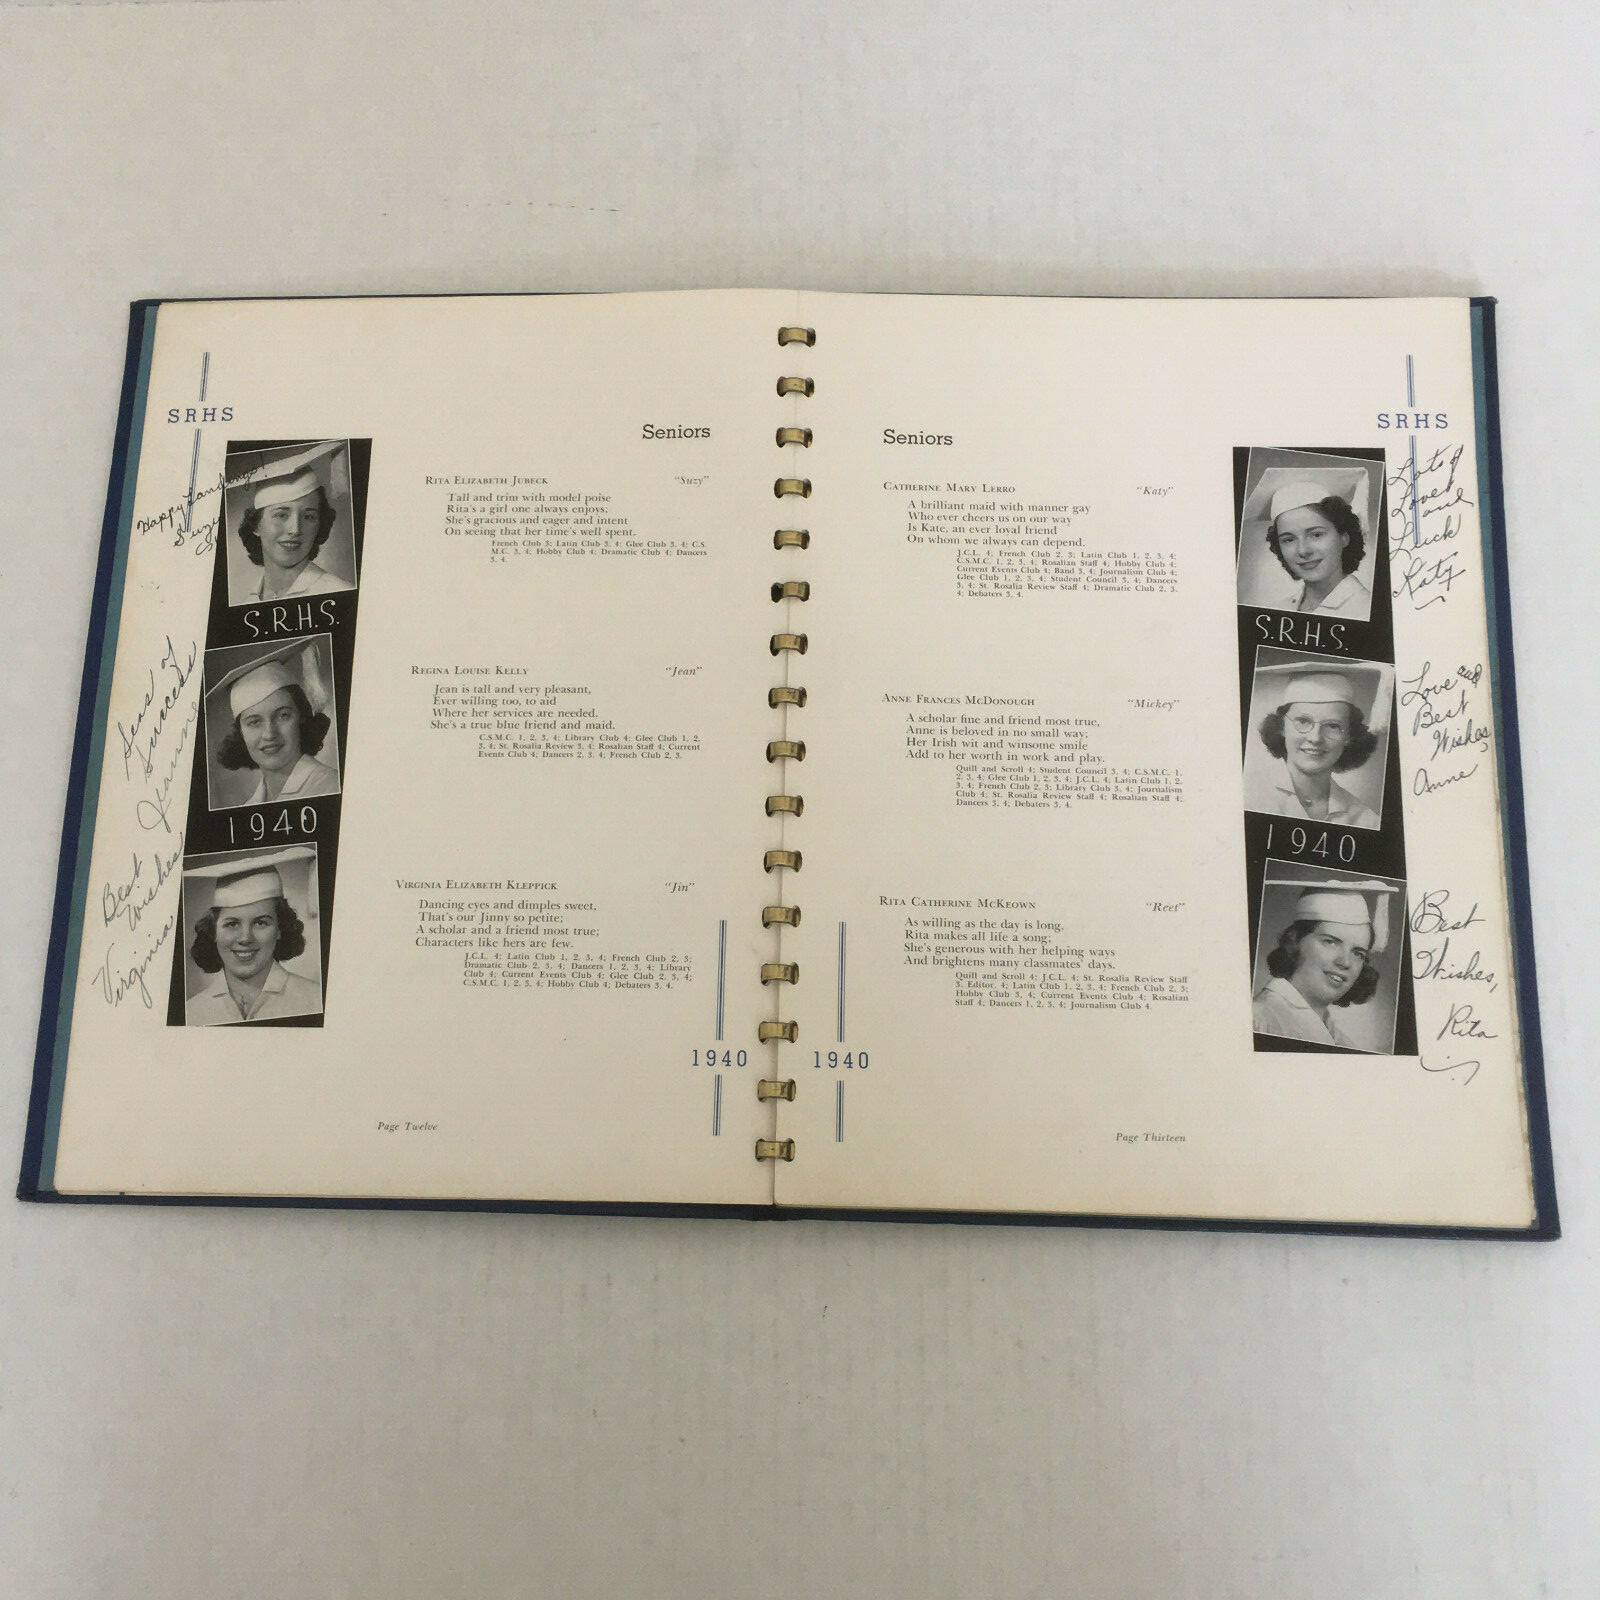 SRHS
Seniors
Happy Landings!
Suzy
RITA ELIZABETH JUBECK "Suzy"
Tall and trim with model poise
Rita's a girl one always enjoys;
She's gracious and eager and intent
On seeing that her time's well spent.
French Club 3; Latin Club 3, 4; Glee Club 3, 4; C.S.
M.C. 3, 4; Hobby Club 4; Dramatic Club 4; Dancers
3, 4.
S.R.H.S.
Seas of
Success
Jeanne
REGINA LOUISE KELLY "Jean"
Jean is tall and very pleasant,
Ever willing too, to aid
Where her services are needed.
She's a true blue friend and maid.
C.S.M.C. 1, 2, 3, 4; Library Club 4; Glee Club 1, 2,
3, 4; St. Rosalia Review 3, 4; Rosalian Staff 4; Current
Events Club 4; Dancers 2, 3, 4; French Club 2, 3.
1940
Best
Wishes
Virginia
VIRGINIA ELIZABETH KLEPPICK "Jin"
Dancing eyes and dimples sweet,
That's our Jinny so petite;
A scholar and a friend most true;
Characters like hers are few.
J.C.L. 4; Latin Club 1, 2, 3, 4; French Club 2, 3;
Dramatic Club 2, 3, 4; Dancers 1, 2, 3, 4; Library
Club 4; Current Events Club 4; Glee Club 2, 3, 4;
C.S.M.C. 1, 2, 3, 4; Hobby Club 4; Debaters 3, 4.
1940
Page Twelve
SRHS
Seniors
CATHERINE MARY LERRO "Katy"
A brilliant maid with manner gay
Who ever cheers us on our way
Is Kate, an ever loyal friend
On whom we always can depend.
J.C.L. 4; French Club 2, 3; Latin Club 1, 2, 3, 4;
C.S.M.C. 1, 2, 3, 4; Rosalian Staff 4; Hobby Club 4;
Current Events Club 4; Band 3, 4; Journalism Club 4;
Glee Club 1, 2, 3, 4; Student Council 3, 4; Dancers
3, 4; St. Rosalia Review Staff 4; Dramatic Club 2, 3,
4; Debaters 3, 4.
Lots of
Love
and
Luck
Katy
S.R.H.S.
ANNE FRANCES MCDONOUGH "Mickey"
A scholar fine and friend most true,
Anne is beloved in no small way;
Her Irish wit and winsome smile
Add to her worth in work and play.
Quill and Scroll 4; Student Council 3, 4; C.S.M.C. 1,
2, 3, 4; Glee Club 1, 2, 3, 4; J.C.L. 4; Latin Club 1, 2,
3, 4; French Club 2, 3; Library Club 3, 4; Journalism
Club 4; St. Rosalia Review Staff 4; Rosalian Staff 4;
Dancers 3, 4; Debaters 3, 4.
Love and
Best
Wishes
Anne
1940
RITA CATHERINE MCKEOWN "Reet"
As willing as the day is long.
Rita makes all life a song;
She's generous with her helping ways
And brightens many classmates' days.
Quill and Scroll 4; J.C.L. 4; St. Rosalia Review Staff
3, Editor, 4; Latin Club 1, 2, 3, 4; French Club 2, 3;
Hobby Club 3, 4; Current Events Club 4; Rosalian
Staff 4; Dancers 1, 2, 3, 4; Journalism Club 4.
Best
Wishes,
Rita
1940
Page Thirteen